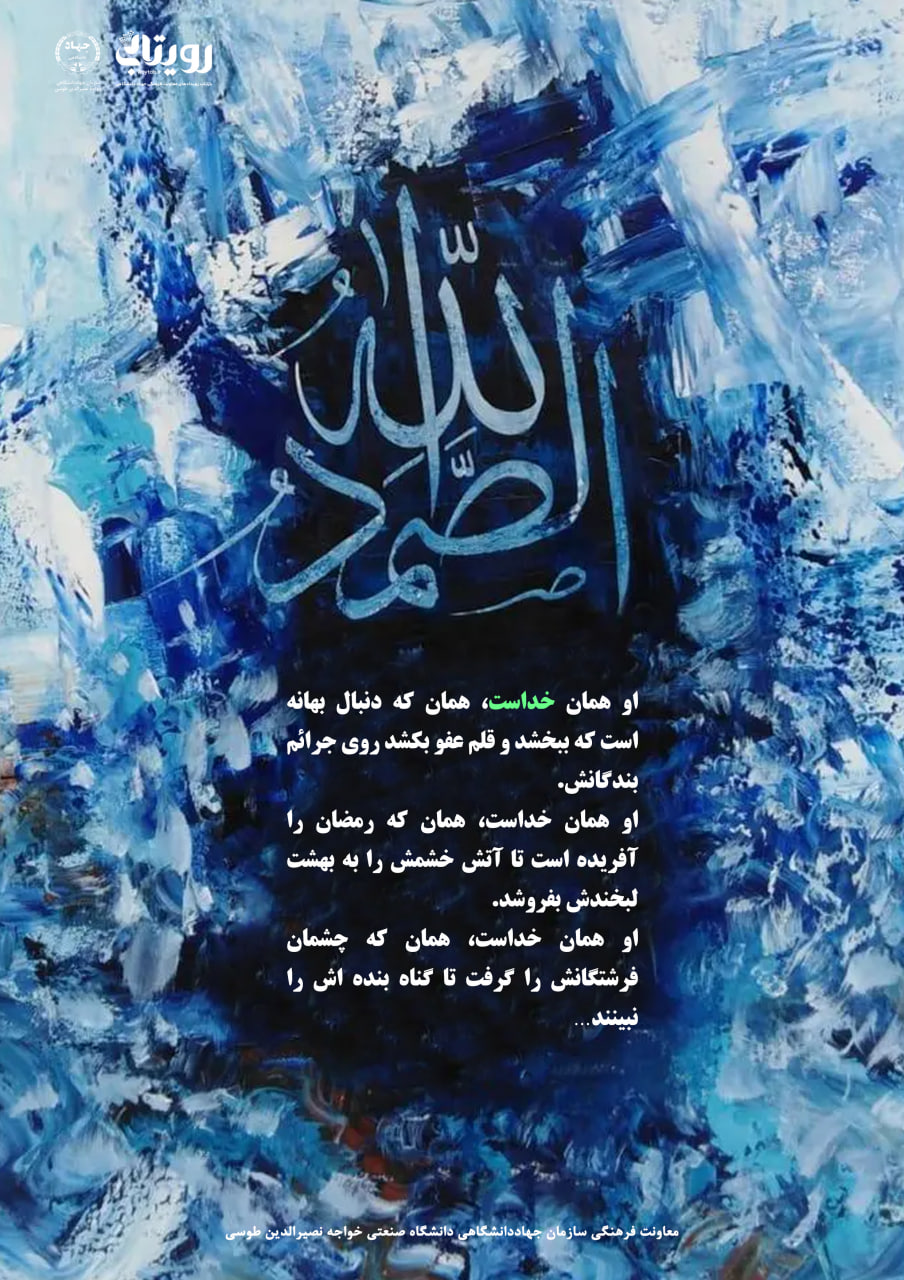 جهاد
رویتاب
اللَّهُ
الصَّمَدُ
او همان خداست، همان که دنبال بهانه
است که ببخشد و قلم عفو بکشد روی جرائم
بندگانش.
او همان خداست، همان که رمضان را
آفریده است تا آتش خشمش را به بهشت
لبخندش بفروشد.
او همان خداست، همان که چشمان
فرشتگانش را گرفت تا گناه بنده اش را
نبینند...
معاونت فرهنگی سازمان جهاددانشگاهی دانشگاه صنعتی خواجه نصیرالدین طوسی